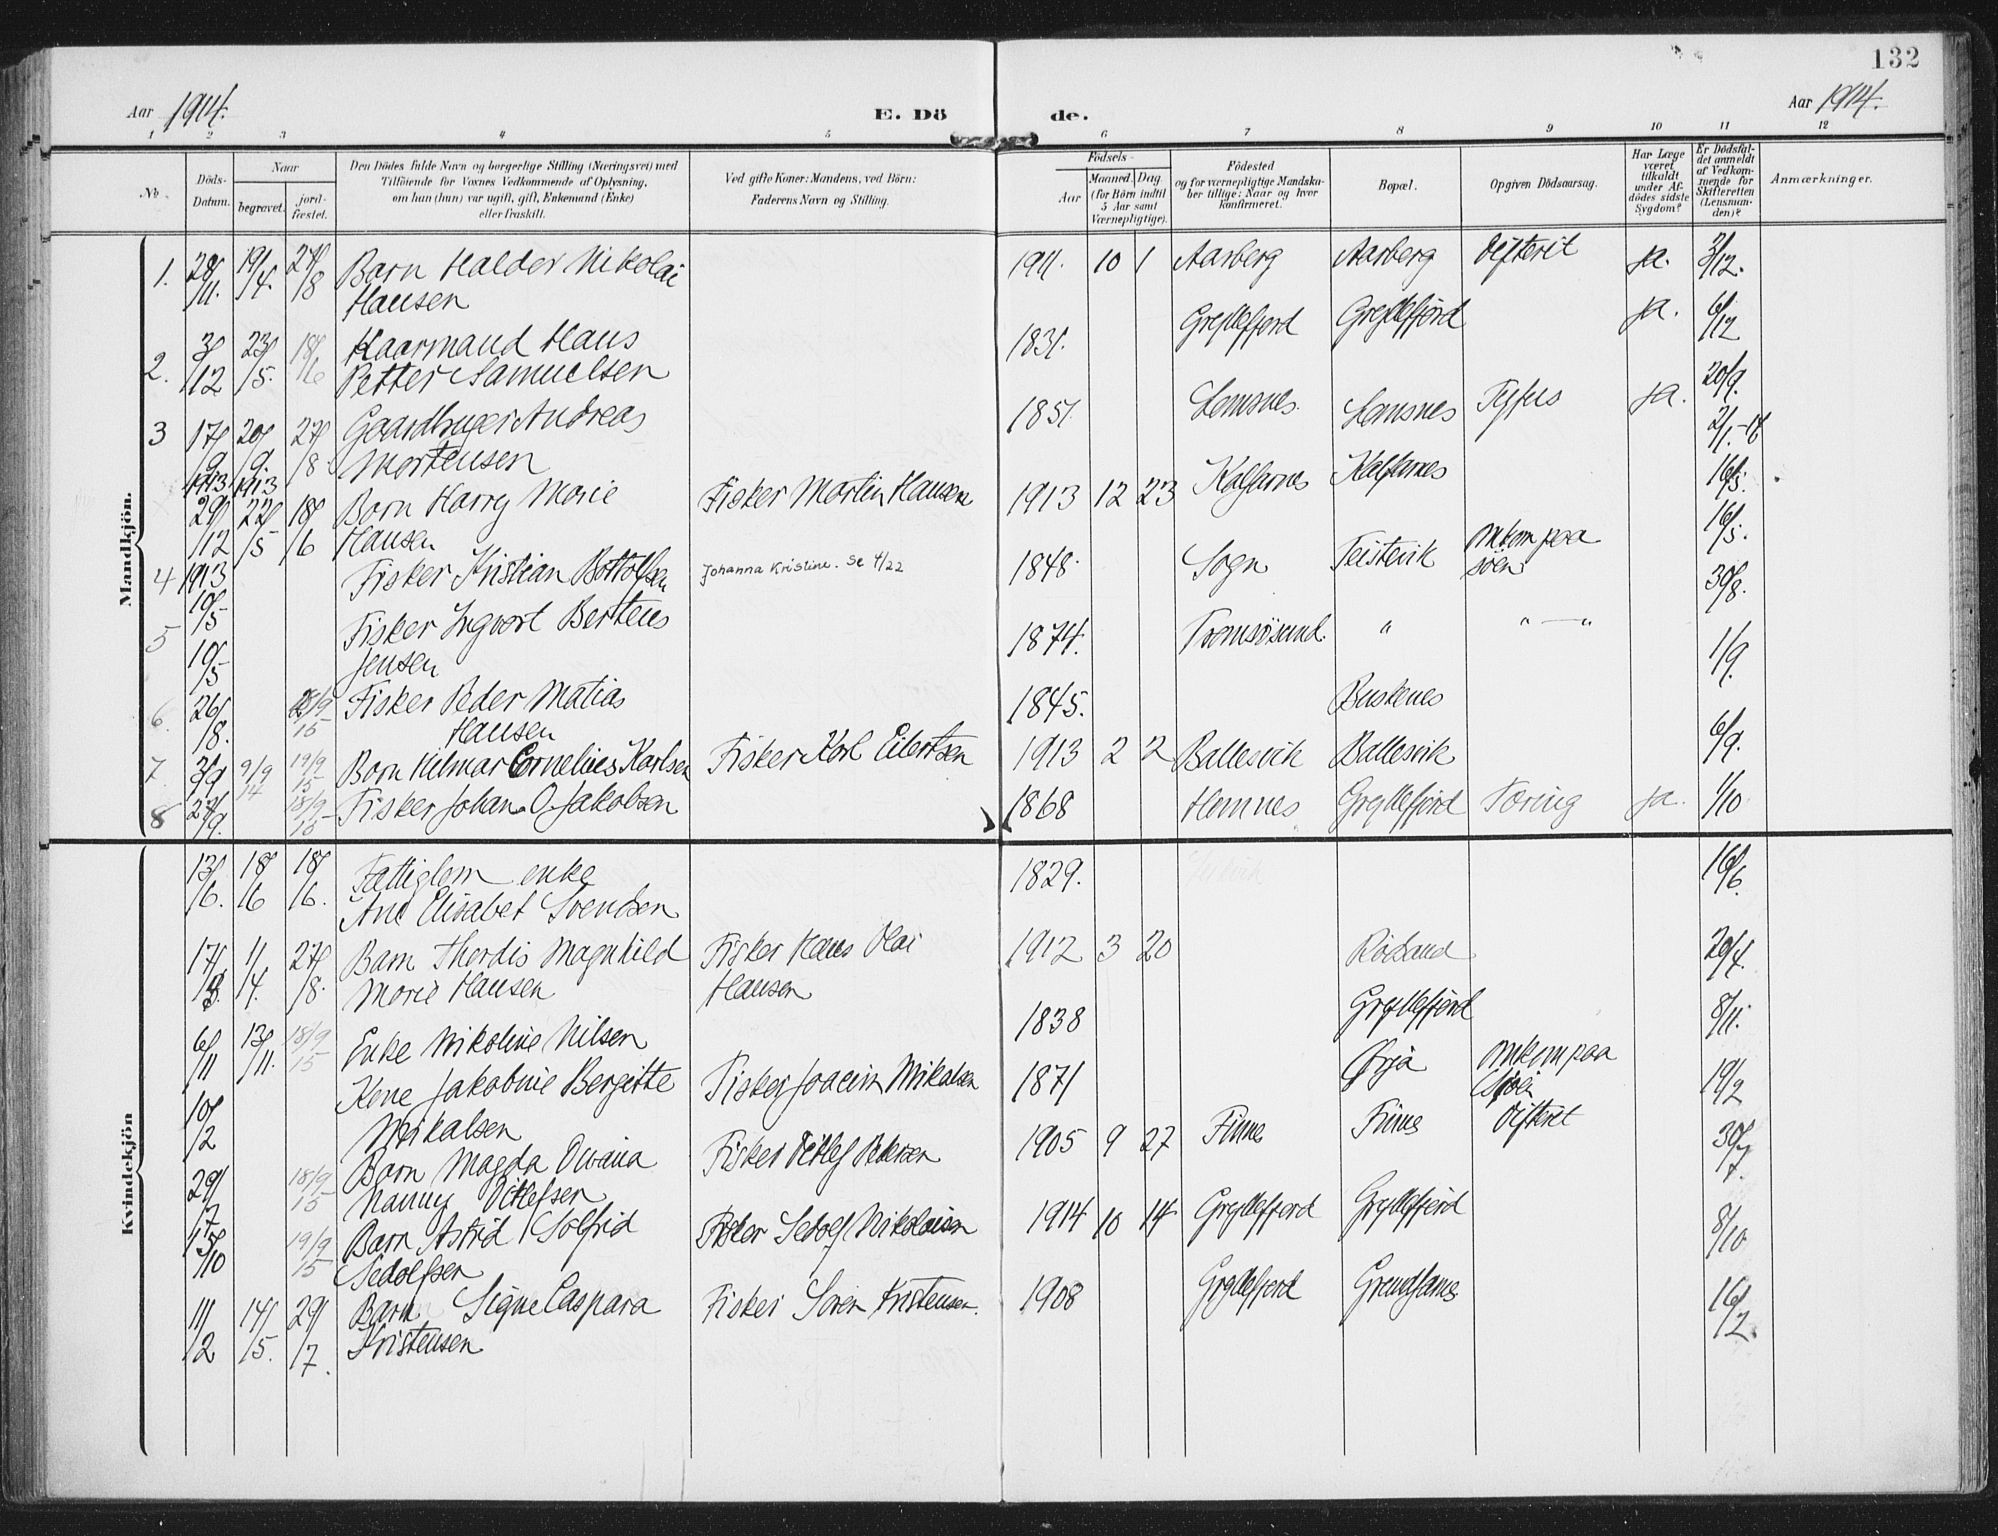 132
Aar 1914.
E. Dö
de.
Aar 1914.
1 2 3 4 5 6 7 8 9 10 11 12
No.
Döds-
Datum.
Naar
begravet.
jord-
fæstet.
Den Dödes fulde Navn og borgerlige Stilling (Næringsvei) med
Tilföiende for Voxnes Vedkommende af Oplysning,
om han (hun) var ugift, gift, Enkemand (Enke)
eller fraskilt.
Ved gifte Koner: Mandens, ved Börn:
Faderens Navn og Stilling.
Födsels-
Aar
Maaned. Dag
(for Börn indtil
5 Aar samt
Værnepligtige).
Födested
og for værnepligtige Mandska-
ber tillige: Naar og hvor
konfirmeret.
Bopæl.
Opgiven Dödsaarsag.
Har Læge
været
tilkaldt
under Af-
dödes sidste
Sygdom?
Er Dödsfal-
det anmeldt
af Vedkom-
mende for
Skifteretten
(Lensman-
den)?
Anmærkninger.
Mandkjön.
1. 28/11. 19/4. 27/8 Barn Halder Nikolai
Hansen
1911. 10 1 Aarberg Aarberg Difterit ja. 3/12.
2. 3/12 23/5. 18/6 Kaarmand Hans
Petter Samuelsen
1831. Gryllefjord Gryllefjord ja. 6/12
3 17/9 1913 20/9 1913 27/8 Gaardbruger Andreas
Mortensen
1851. Lemsnes Lemsnes Tyfus ja. 20/9.
29/12 1913 22/5 18/6 Barn Harry Marie
Hansen
Fisker Martin Hansen 1913 12 23 Kalfarnes Kalfarnes 2/1-14
4 10/5 Fisker Kristian Bottolfsen
Johanna Kristine. Se 4/22
1848. Sogn Teistevik Omkom paa
söen
16/5.
5 10/5 Fisker Ingvart Berteus
Jensen
1874. Tromsösund. " " — " 16/5.
6. 26/8. 18/9 15 Fisker Peder Matias
Hansen
1845. Buskenes 30/8.
7. 3/9 9/9 14 19/9 15 Barn Hilmar Cornelius Karlsen Fisker Karl Eilertsen 1913 2 2 Ballesvik Ballesvik 6/9.
1/9.
8 27/9. 18/9 15 Fisker Johan O. Jakobsen 1868 Hemnes Gryllefjord Tæring ja. 1/10
Kvindekjön
13/6. 18/6 18/6. Fattiglem enke
Ane Elisabet Svendsen
1829. 16/6.
17/3. 1/4. 27/8. Barn Thordis Magnhild
Marie Hansen
Fisker Hans Olai
Hansen
1912 3 20 Rödsand 20/4.
6/11 13/11. 18/9 15 Enke Nikoline Nilsen 1838 Gryllefjord 8/11.
10/2 Kone Jakobine Bergitte
Mikalsen
Fisker Joacim Mikalsen 1871 Örja Omkom paa
Sjöen
19/2
29/7 18/9 15 Barn Magda Ovana
Nanny Ditlefsen
Fisker Ditlef Pedersen 1905 9 27 Finnes Finnes Difterit 30/7.
15/10 19/9 15 Barn Astrid Solfrid
Sedolfsen
Fisker Sedolf Nikolaisen 1914 10 14 Gryllefjord Gryllefjord 8/10
11/2 14/5. 29/7. Barn Signe Caspara
Kristensen
Fisker Sören Kristensen. 1908 Gryllefjord Grundfarnes 16/2.